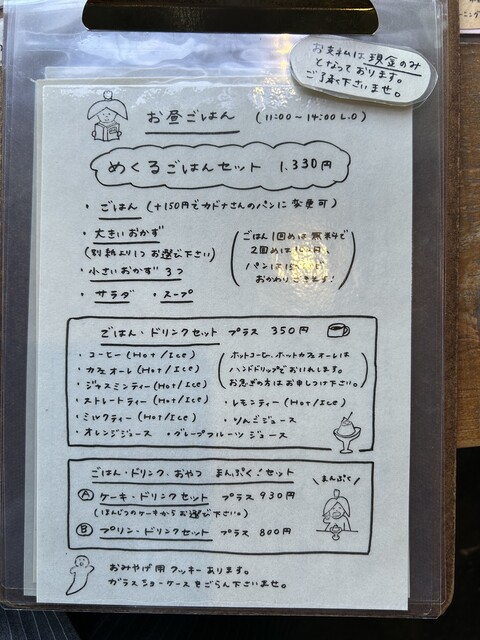 お支払は現金のみ
となっております。
ご了承下さいませ。
お昼ごはん (11:00〜14:00 L.O)
めくるごはんセット 1.330円
・ごはん (+150円でカドナさんのパンに変更可)
・大きいおかず
(別紙より1つお選び下さい)
・小さいおかず 3つ
・サラダ ・スープ
(ごはん1回めは無料で
2回めは
パンは
おかわりできます!)
ごはん・ドリンクセット プラス 350円
・コーヒー (Hot/Ice)
・カフェオレ (Hot/Ice)
・ジャスミンティー (Hot/Ice)
(ホットコーヒー、ホットカフェオーレは
ハンドドリップでおいれします。
お急ぎの方はお申しつけ下さい。)
・ストレートティー (Hot/Ice) ・レモンティー (Hot/Ice)
・ミルクティー (Hot/Ice) ・りんごジュース
・オレンジジュース ・グレープフルーツジュース
ごはん・ドリンク・おやつ まんぷく!セット
Ⓐ ケーキ・ドリンクセット プラス 930円
(ほんじつのケーキからお選び下さい。)
Ⓑ プリン・ドリンクセット プラス 800円
\まんぷく/
おみやげ用クッキーあります。
ガラスショーケースをごらん下さいませ。